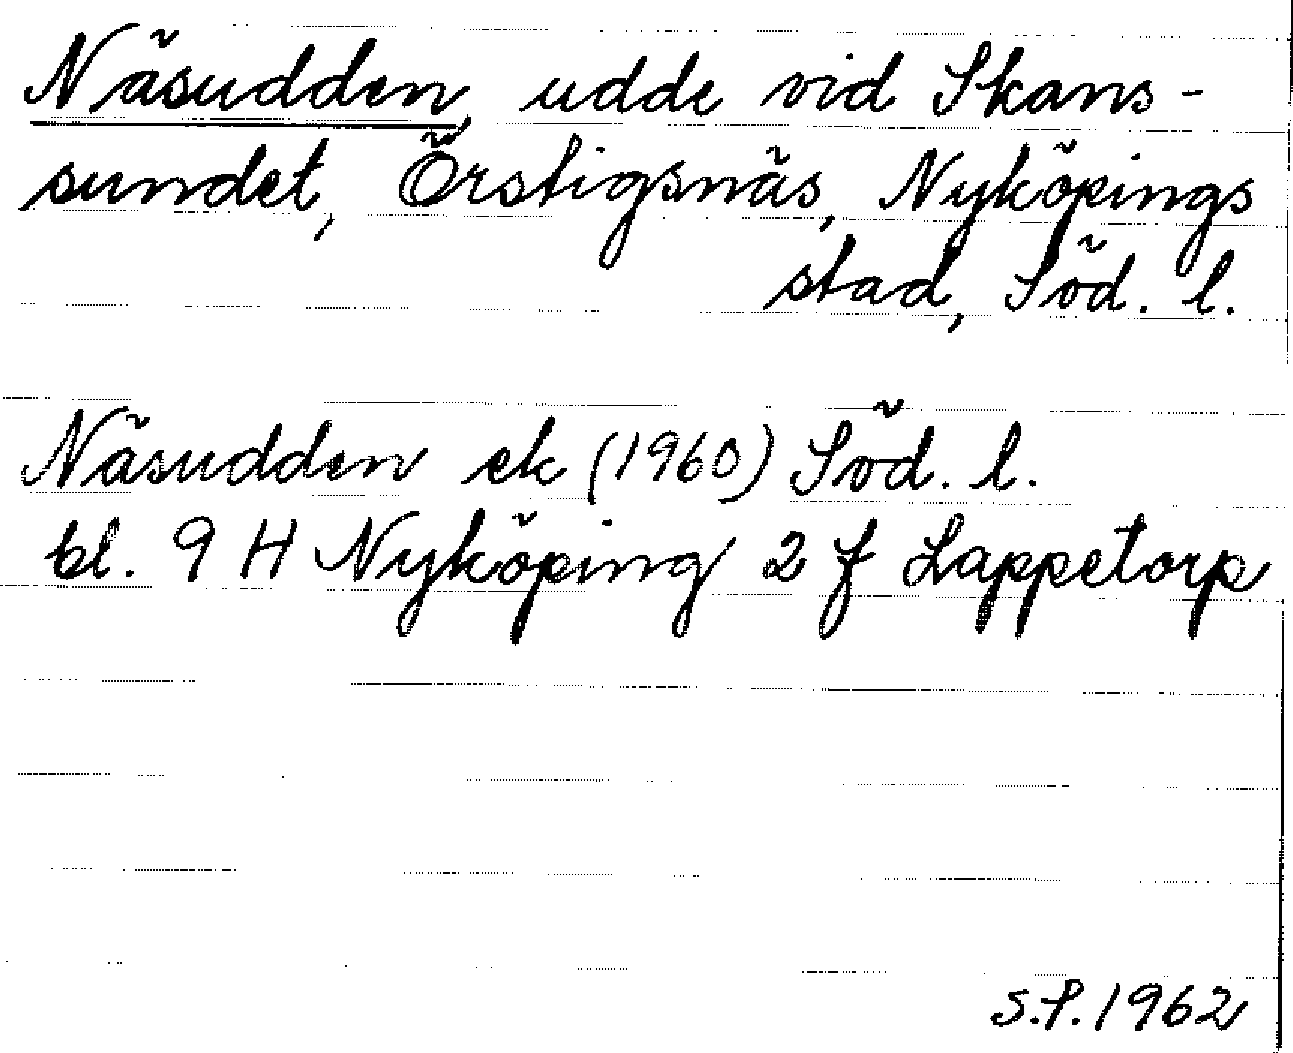 Näsudden, udde vid Skans-
sundet, Örstigsnäs, Nyköpings
stad, Söd. l.
Näsudden ek (1960) Söd. l.
bl. 9 H Nyköping 2 f Lappetorp
S.P. 1962